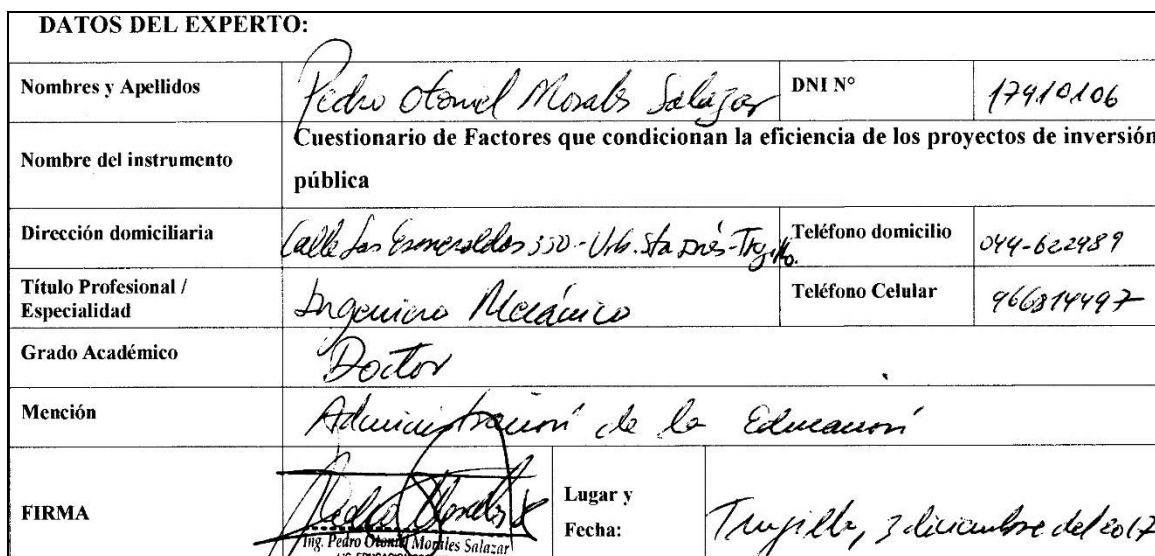 DATOS DEL EXPERTO:
Nombres y Apellidos Pedro Otoniel Morales Salazar DNI N° 17910106
Nombre del instrumento Cuestionario de Factores que condicionan la eficiencia de los proyectos de inversión
pública
Dirección domiciliaria Calle Las Esmeraldas 330 - Urb. Sta Inés - Trujillo. Teléfono domicilio 044-622989
Título Profesional /
Especialidad Ingeniero Mecánico Teléfono Celular 966814497
Grado Académico Doctor
Mención Administración de la Educación
FIRMA Pedro Morales S Lugar y
Fecha: Trujillo, 3 diciembre del 2017
Ing. Pedro Otoniel Morales Salazar